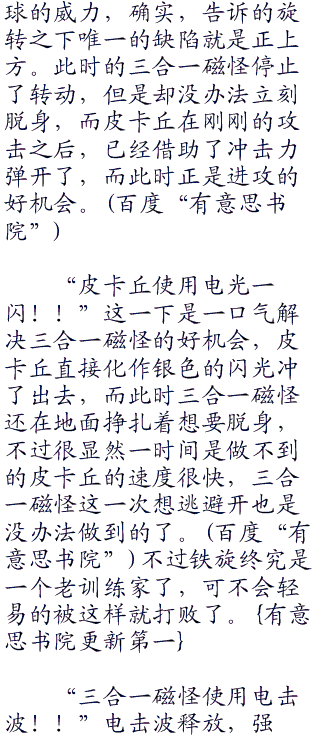 球的威力，确实，告诉的旋
转之下唯一的缺陷就是正上
方。此时的三合一磁怪停止
了转动，但是却没办法立刻
脱身，而皮卡丘在刚刚的攻
击之后，已经借助了冲击力
弹开了，而此时正是进攻的
好机会。(百度“有意思书
院”)
“皮卡丘使用电光一
闪！！”这一下是一口气解
决三合一磁怪的好机会，皮
卡丘直接化作银色的闪光冲
了出去，而此时三合一磁怪
还在地面挣扎着想要脱身，
不过很显然一时间是做不到
的皮卡丘的速度很快，三合
一磁怪这一次想逃避开也是
没办法做到的了。(百度“有
意思书院”)不过铁旋终究是
一个老训练家了，可不会轻
易的被这样就打败了。{有意
思书院更新第一}
“三合一磁怪使用电击
波！！”电击波释放，强